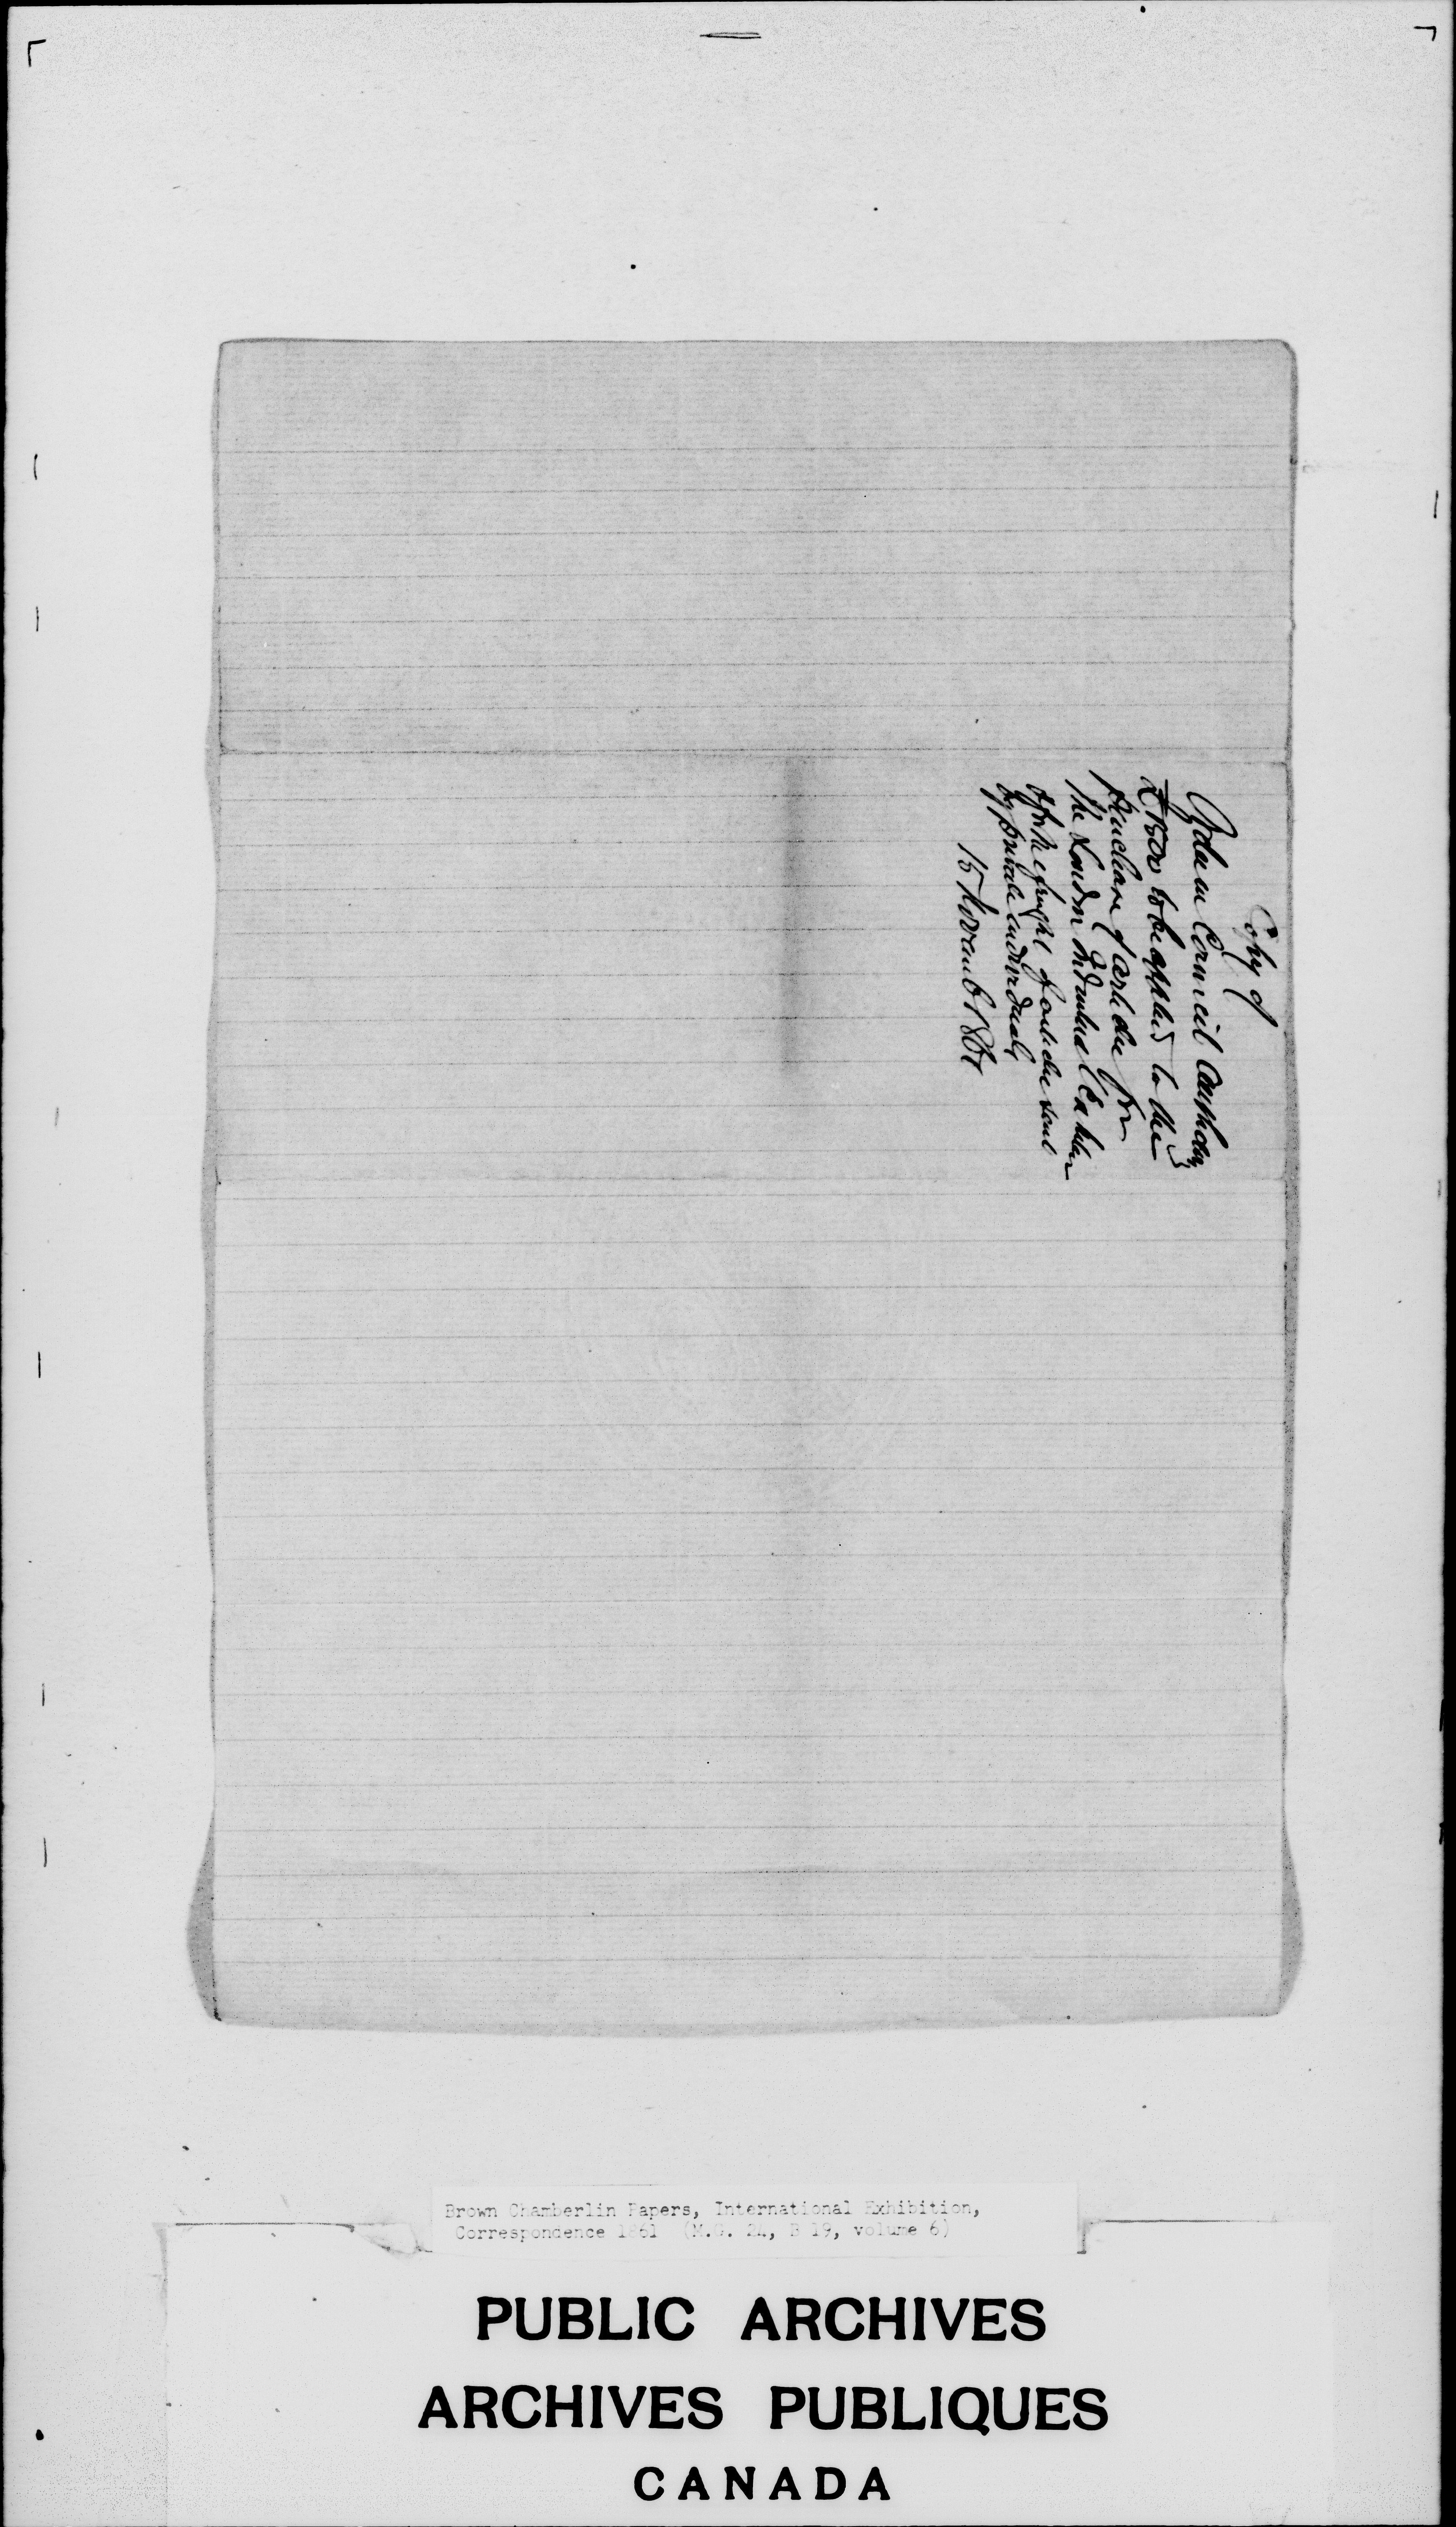 Copy of
Order in Council authorizg
£1500 to be applied to the
purchase of articles for
the London Industrial Exhibn
& for the freight of articles sent
by private individuals
15 November 1861
Brown Chamberlin Papers, International Exhibition,
Correspondence 1861 (M.G. 24, B 19, volume 6)
PUBLIC ARCHIVES
ARCHIVES PUBLIQUES
CANADA